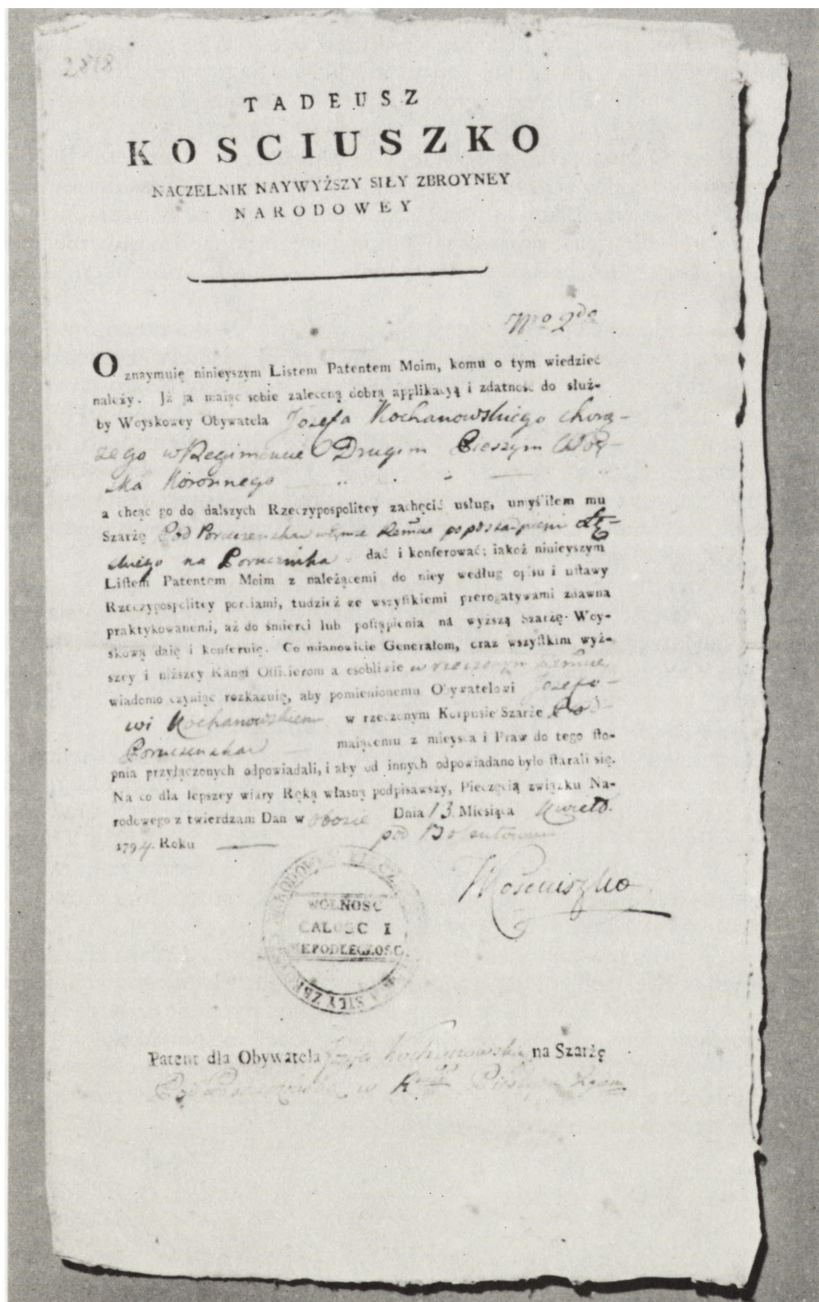 2818
TADEUSZ
KOSCIUSZKO
NACZELNIK NAYWYŻSZY SIŁY ZBROYNEY
NARODOWEY
Nro 2do
Oznaymuię ninieyszym Listem Patentem Moim, komu o tym wiedzieć
należy. Iż ja maiąc sobie zaleconą dobrą applikacyą i zdatność do służ-
by Woyskowey Obywatela Jozefa Kochanowskiego chorą-
żego w Regimencie Drugim Pieszym Woy-
ska Koronnego
a chcąc go do dalszych Rzeczypospolitey zachęcić usług, umyśliłem mu
Szarżę Pod Poruczenska w tymże Remcie po postąpieniu
na Porucznika dać i konferować; iakoż ninieyszym
Listem Patentem Moim z należącemi do niey według opisu i ustawy
Rzeczypospolitey porciami, tudzież ze wszystkiemi prerogatywami zdawna
praktykowanemi, aż do śmierci lub postąpienia na wyższą Szarżę Woy-
skową daię i konferuię. Co mianowicie Generałom, oraz wszystkim wyż-
szey i niższey Rangi Officierom a osobliwie w rzeczonym Remcie
wiadomo czyniąc rozkazuię, aby pomienionemu Obywatelowi Jozefo-
wi Kochanowskiemu w rzeczonym Korpusie Szarże Pod
Poruczenska maiącemu z mieysca i Praw do tego sto-
pnia przyłączonych odpowiadali, i aby od innych odpowiadano było starali się.
Na co dla lepszey wiary Ręką własną podpisawszy, Pieczęcią związku Na-
rodowego z twierdzam Dan w obozie Dnia 13 Miesiąca
1794 Roku pod
Kościuszko
WOLNOSC
CALOSC I
NIEPODLEGLOSC
SIŁY ZBRO
Patent dla Obywatela Jozefa Kochanowskiego na Szarżę
w